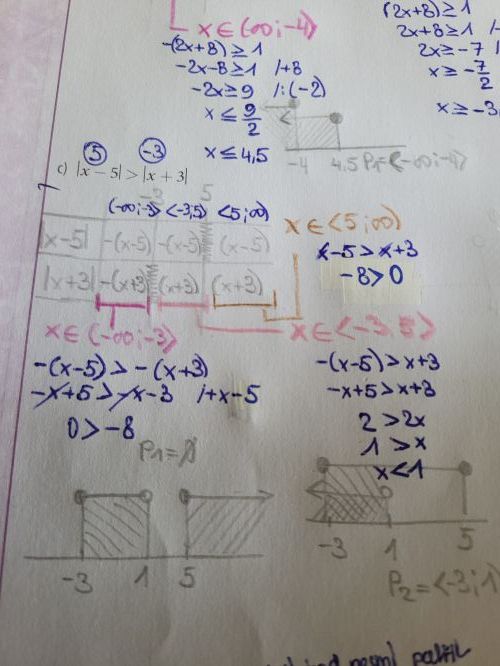 x ∈ (-∞; -4)
-(2x+8) ≥ 1
-2x-8 ≥ 1 /+8
-2x ≥ 9 /:(-2)
x ≤ 9/2
x ≤ 4,5
(2x+8) ≥ 1
2x+8 ≥ 1
2x ≥ -7
x ≥ -7/2
x ≥ -3,
-4 4,5 P₁=<-∞;-4)
5 -3
c) |x − 5| > |x + 3|
-3 5
(-∞;-3) <-3;5) <5;∞)
|x-5| -(x-5) -(x-5) (x-5)
|x+3| -(x+3) (x+3) (x+3)
x ∈ <5;∞)
x-5 > x+3
-8 > 0
x ∈ (-∞;-3)
-(x-5) > -(x+3)
-x+5 > -x-3 /+x-5
0 > -8
P₁=∅
x ∈ <-3;5)
-(x-5) > x+3
-x+5 > x+3
2 > 2x
1 > x
x < 1
-3 1 5
-3 1 5
P₂=<-3;1)